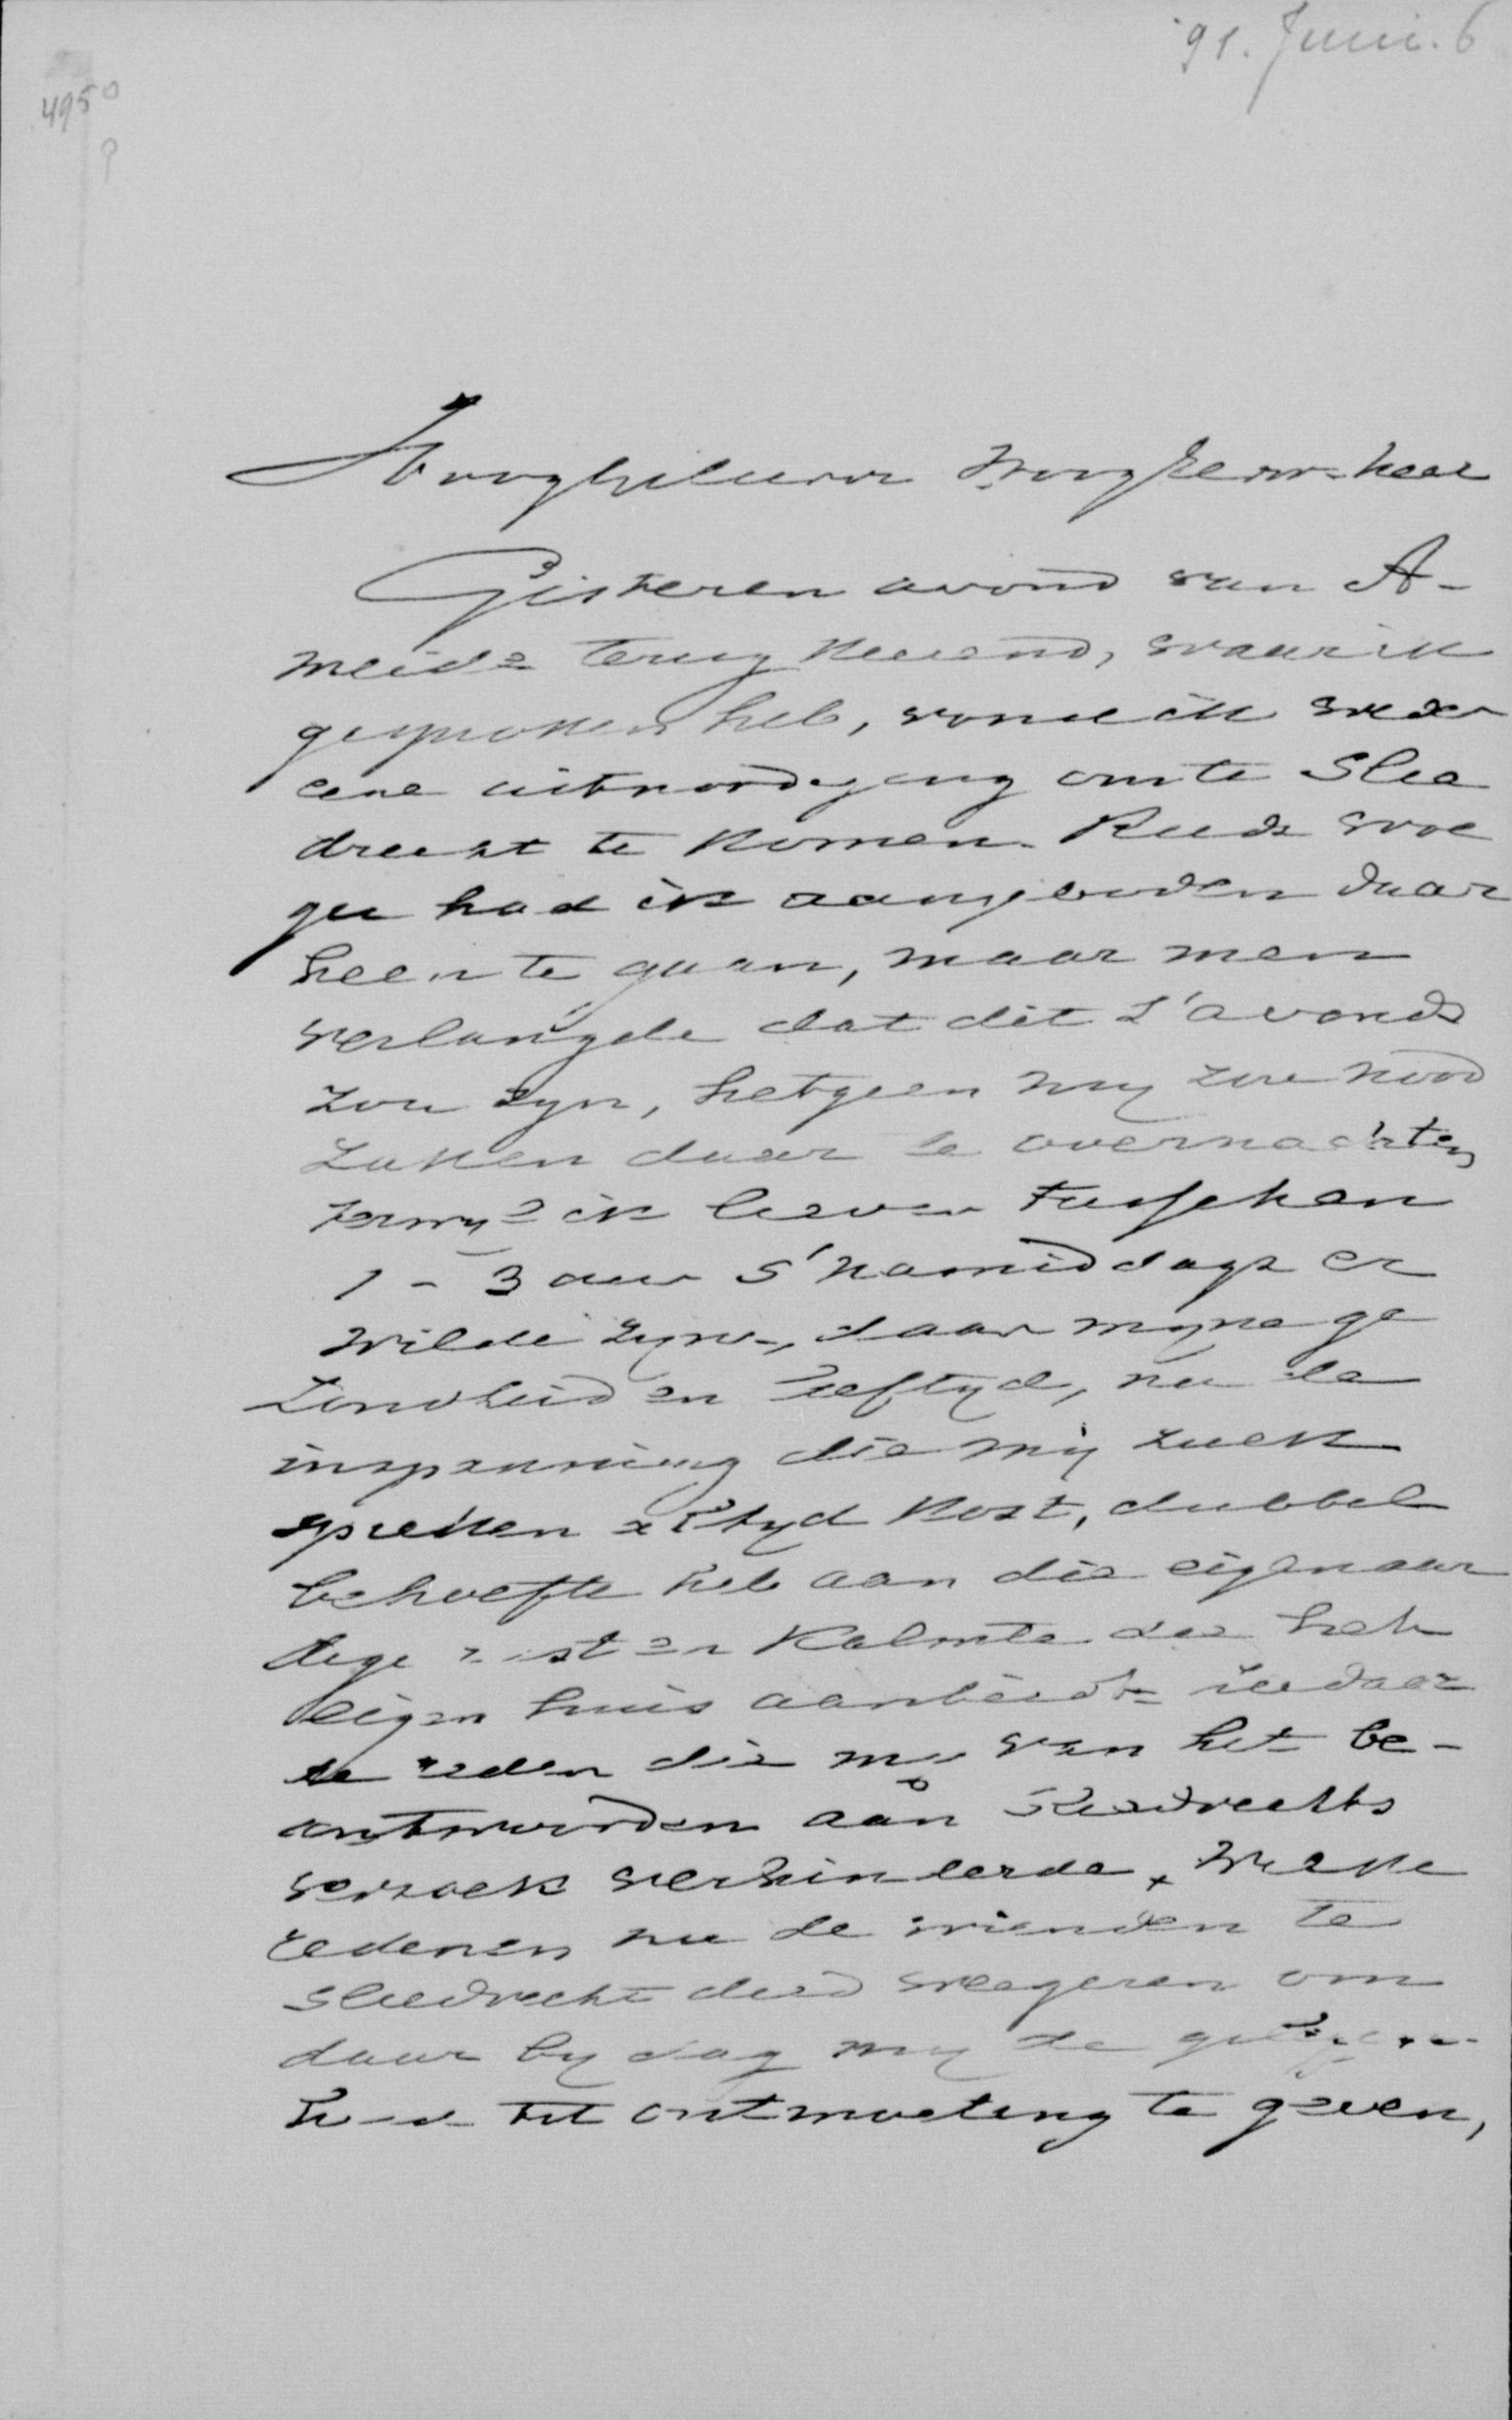 '91. Juni. 6
4950
Hooggeleerde Hooggew. heer
Gisteren avond van A-
meide terug keerend, waar ik
gesproken heb, vond ik weder
eene uitnoodiging om te Slie
drecht te komen. Reeds vroe
ger had ik aangeboden daar
heen te gaan, maar men
verlangde dat dit s'avonds
zou zyn, hetgeen my zou nood
zaken daar te overnachten
terwyl ik liever tusschen
1 - 3 uur s'namiddags er
wilde zyn, daar myne ge
zondheid en leeftyd, na de
inspanning die mij zulk
spreken altyd kost, dubbel
behoefte heb aan die eigenaar
dige rust en kalmte die het
eigen huis aanbiedt. ziedaar
de reden die my van het be-
antwoorden aan Sliedrechts
verzoek verhinderde, welke
redenen nu de vrienden te
Sliedrecht deed weigeren om
daar by dag my de gelegen-
heid tot ontmoeting te geven,